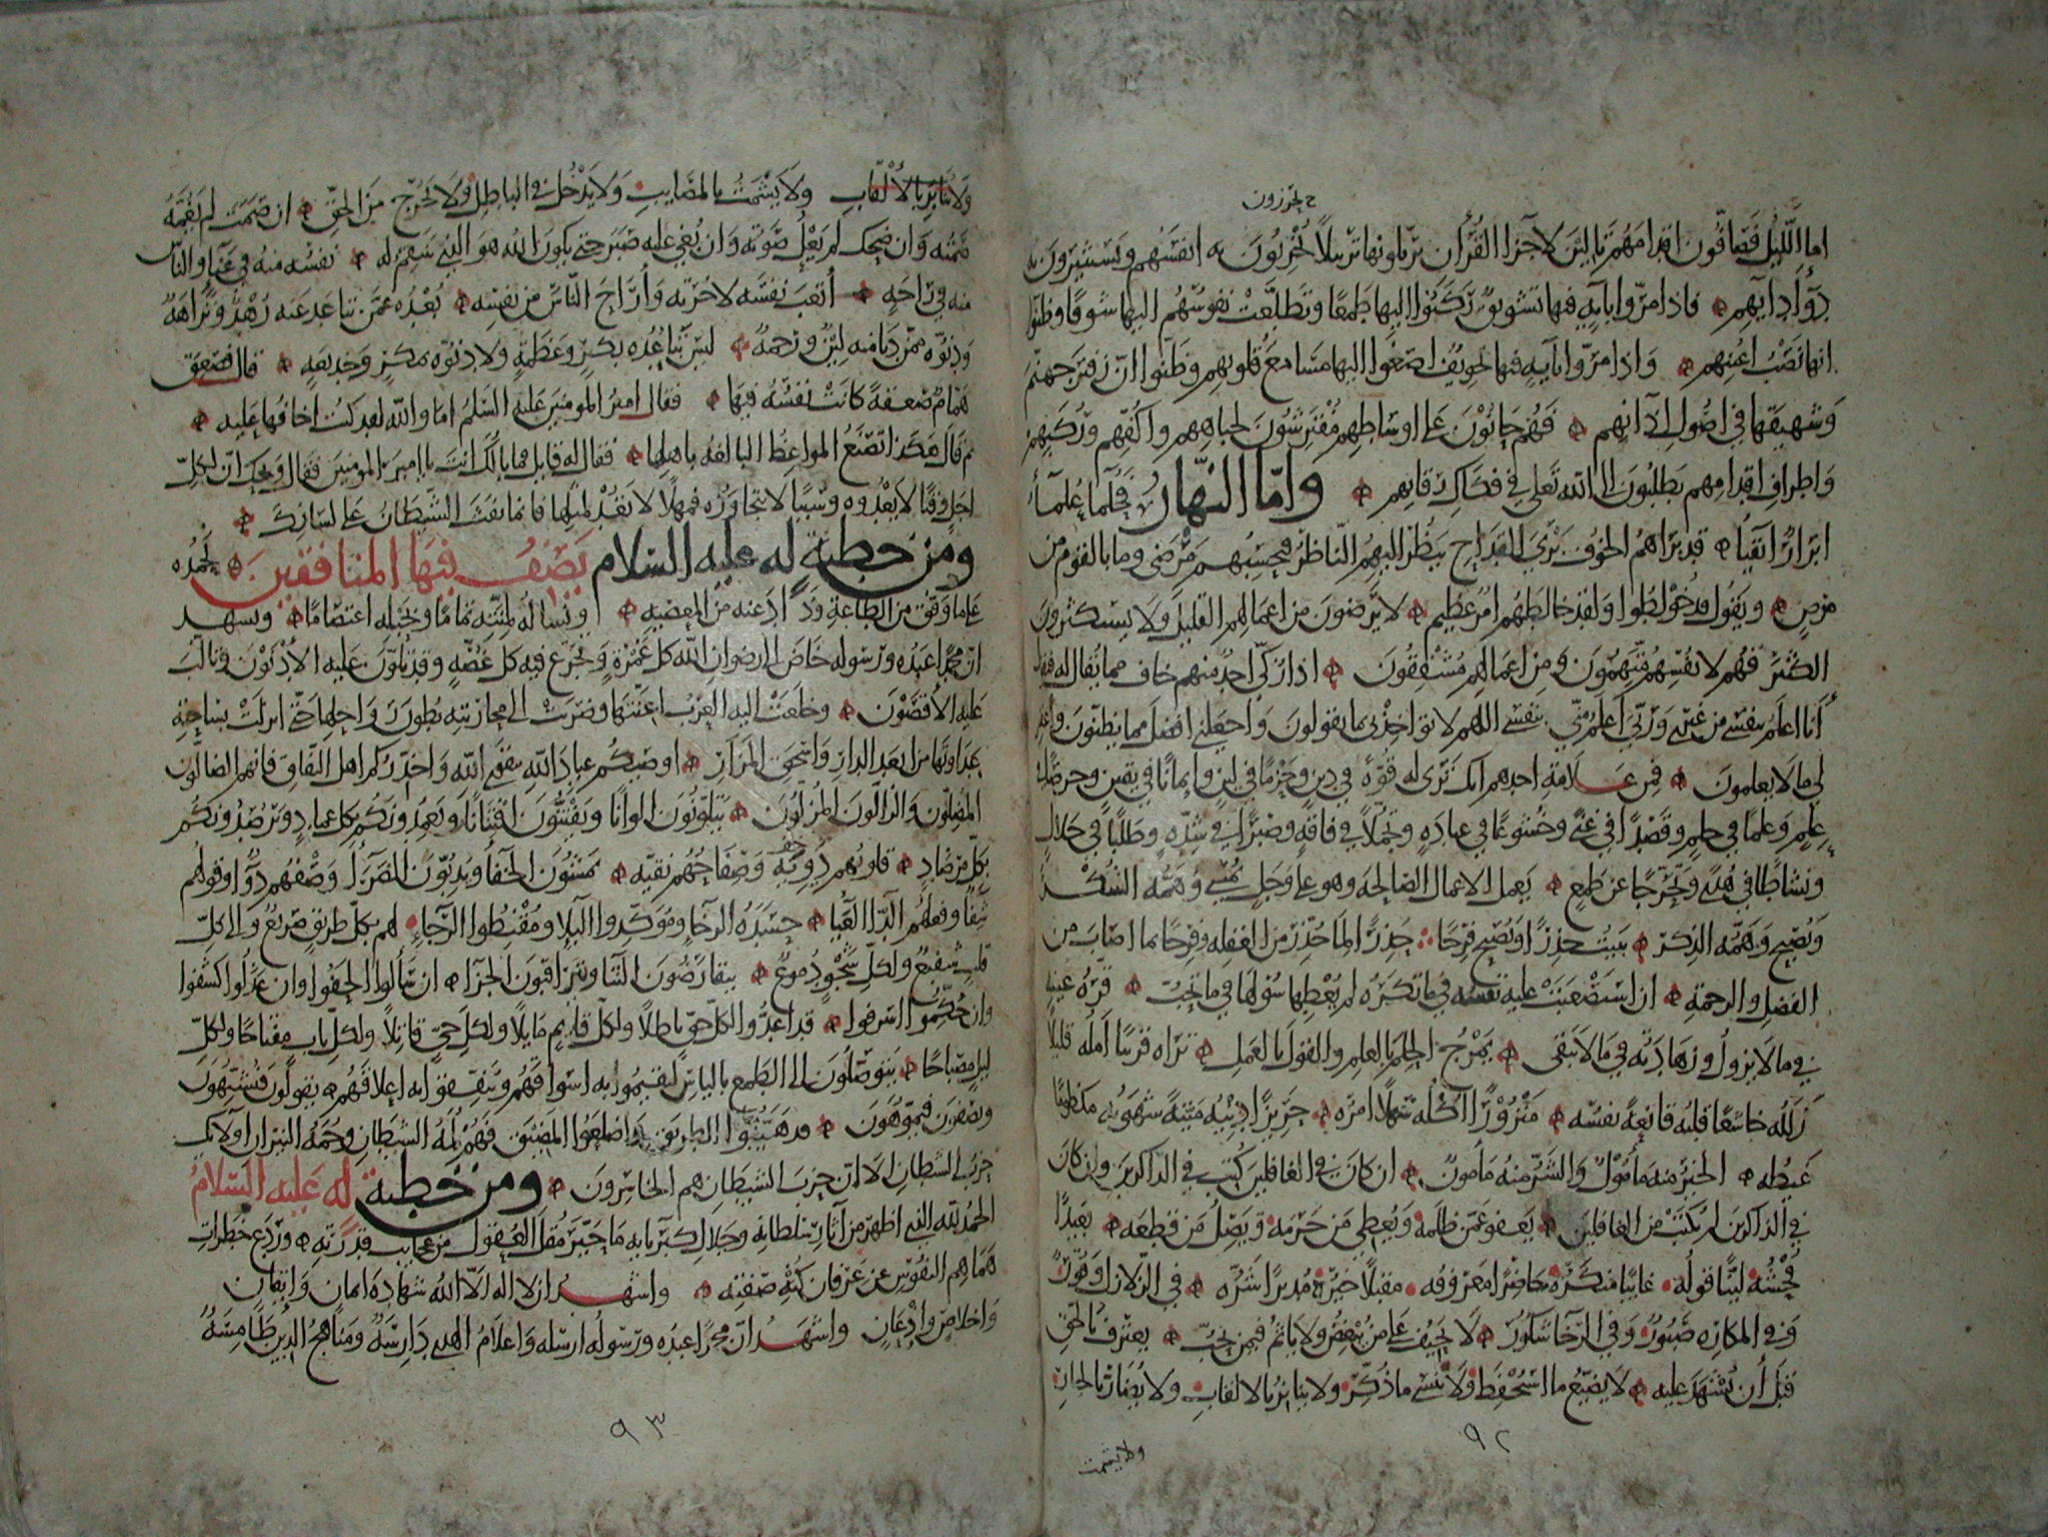 ح يحزنون
اما الليل فصافون اقدامهم تالين لاجزا القرأن يرتلونها ترتيلاً يحزنون به انفسهم ويستثيرون به
دوآ دايهم فاذا مروا بايةٍ فيها تشويق ركنوا اليها طمعًا وتطلعت نفوسهم اليها شوقًا وظنوا
انها نصب اعينهم واذا مروا بآيةٍ فيها تخويف اصغوا اليها مسامع قلوبهم وظنوا ان زفير جهنم
وشهيقها في اصول اذانهم فهم حانون على اوساطهم مفترشون لجباههم واكفهم وركبهم
واطراف اقدامهم يطلبون الى الله تعلى في فكاك رقابهم واما النهار فحلماء علمآء
ابرار اتقيآ قد براهم الخوف بري القداح ينظر اليهم الناظر فيحسبهم مرضى وما بالقوم من
مرض ويقول قد خولطوا ولقد خالطهم امر عظيم لا يرضون من اعمالهم القليل ولا يستكثرون
الكثير فهم لانفسهم متهمون ومن اعمالهم مشفقون اذا زكي احد منهم خاف مما يقال له فيقول
أنا اعلم بنفسي من غيري وربي أعلم مني بنفسي اللهم لا تواخذني بما يقولون واجعلني افضل مما يظنون واغفر
لي ما لا يعلمون فمن علامة احدهم انك ترى له قوةً في دين وحزمًا في لين وايمانًا في يقين وحرصًا في
علم وعلمًا في حلم وقصدًا في غنى وخشوعًا في عبادةٍ وتجملًا في فاقةٍ وصبرًا في شدةٍ وطلبًا في حلال
ونشاطًا في هدى وتحرجًا عن طمع يعمل الاعمال الصالحة وهو على وجل يمسي وهمه الشكر
ويصبح وهمه الذكر يبيت حذرًا ويصبح فرحًا حذرًا لما حذر من الغفلة وفرحًا بما اصاب من
الفضل والرحمة ان استصعبت عليه نفسه فيما تكره لم يعطها سؤلها فيما تحب قرة عينه
فيما لا يزول وزهادته فيما لا يبقى يمزج الحلم بالعلم والقول بالعمل تراه قريبًا أمله قليلًا
زلله خاشعًا قلبه قانعةً نفسه منزورًا اكله سهلًا امره حريزًا دينه ميتةً شهوته مكظومًا
غيظه الخير منه مأمول والشر منه مأمون ان كان في الغافلين كتب في الذاكرين وان كان
في الذاكرين لم يكتب من الغافلين يعفو عمن ظلمه ويعطي من حرمه ويصل من قطعه بعيدًا
فحشه لينًا قوله غائبًا منكره حاضرًا معروفه مقبلًا خيره مدبرًا شره في الزلازل وقور
وفي المكاره صبور وفي الرخا شكور لا يحيف على من يبغض ولا ياثم فيمن يحب يعترف بالحق
قبل أن يشهد عليه لا يضيع ما استحفظ ولا ينسى ما ذكر ولا ينابز بالالقاب ولا يضار بالجار
٩٢
ولا يشمت
ولا ينابز بالألقاب ولا يشمت بالمصايب ولا يدخل في الباطل ولا يخرج من الحق ان صمت لم يغمه
صمته وان ضحك لم يعل صوته وان بغي عليه صبر حتى يكون الله هو الذي ينتقم له نفسه منه في عنآء والناس
منه في راحة أتعب نفسه لاخرته وأراح الناس من نفسه بعده عمن تباعد عنه زهد ونزاهة
ودنوه ممن دنا منه لين ورحمة ليس تباعده بكبر وعظمة ولا دنوه بمكر وخديعة قال فصعق
همام صعقةً كانت نفسه فيها فقال امير المومنين عليه السلم اما والله لقد كنت اخافها عليه
ثم قال هكذا تصنع المواعظ البالغة باهلها فقال له قايل فما بالك انت يا امير المومنين فقال ويحك ان لكل
اجل وقتًا لا يعدوه وسببًا لا يتجاوزه فمهلًا لا تعد لمثلها فانما نفث الشيطان على لسانك
ومن خطبة له عليه السلام يصف فيها المنافقين نحمده
على ما وفق من الطاعة وذاد عنه من المعصية ونساله لمنته تمامًا وبحبله اعتصامًا ونشهد
ان محمدًا عبده ورسوله خاض الى رضوان الله كل غمرةٍ وتجرع فيه كل غصةٍ وقد تلون عليه الأدنون وتالب
عليه الأقصون وخلعت اليه العرب اعنتها وضربت الى محاربته بطون رواحلها حتى انزلت بساحته
عداوتها من ابعد الدار واسحق المزار اوصيكم عباد الله بتقوى الله واحذركم اهل النفاق فانهم الضالون
المضلون والزالون المزلون يتلونون الوانًا ويفتنون افتنانًا ويعمدونكم بكل عماد ويرصدونكم
بكل مرصاد قلوبهم دوية وصفاحهم نقية يمشون الخفآ ويدبون الضرآ وصفهم دوآ وقولهم
شفآ وفعلهم الدآ العيآ حسدة الرخآء ومؤكدوا البلآء ومقنطوا الرجآء لهم بكل طريق صريع والى كل
قلب شفيع ولكل شجو دموع يتقارضون الثنآ ويتراقبون الجزآ ان سألوا الحفوا وان عذلوا كشفوا
وان حكموا اسرفوا قد اعدوا لكل حق باطلًا ولكل قايم مايلًا ولكل حي قاتلًا ولكل باب مفتاحًا ولكل
ليل مصباحًا يتوصلون الى الطمع بالياس ليقيموا به اسواقهم وينفقوا به اعلاقهم يقولون فيشبهون
ويصفون فيموهون قد هينوا الطريق واضلعوا المضيق فهم لمة الشيطان وحمة النيران اولآئك
حزب الشيطان الا ان حزب الشيطان هم الخاسرون ومن خطبة له عليه السلام
الحمد لله الذي اظهر من آثار سلطانه وجلال كبريائه ما حير مقل العقول من عجايب قدرته وردع خطرات
هماهم النفوس عن عرفان كنه صفته واشهد ان لا اله الا الله شهادة ايمان وايقان
واخلاص واذعان واشهد ان محمدًا عبده ورسوله ارسله واعلام الهدى دارسة ومناهج الدين طامسة
٩٣